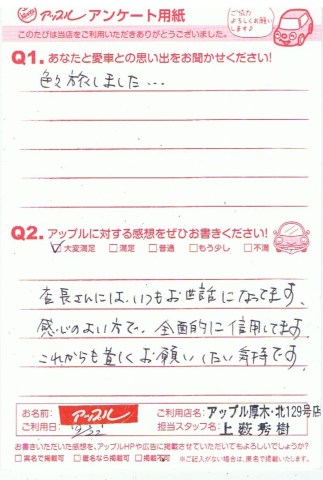 アップル アンケート用紙
ご協力
よろしくお願い
します♪
このたびは当店をご利用いただきありがとうございました。
Q1. あなたと愛車との思い出をお聞かせください!
色々旅しました…
Q2. アップルに対する感想をぜひお書きください!
大変満足 満足 普通 もう少し 不満
店長さんには、いつもお世話になってます。
感じのよい方で、全面的に信用してます。
これからも宜しくお願いしたい気持です。
お名前: アップル ご利用店名: アップル厚木・北129号店
ご利用日: 担当スタッフ名: 上薮秀樹
お書きいただいた感想を、アップルHPや広告に掲載させていただいてもよろしいでしょうか?
実名で掲載可 匿名なら掲載可 掲載不可 ※ご記入がない場合は、匿名で掲載いたします。